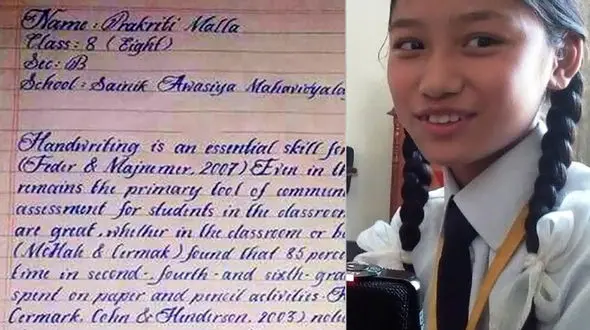 Name : Prakriti Malla
Class : 8 (Eight)
Sec : B
School : Sainik Awasiya Mahavidyalay
Handwriting is an essential skill for
(Feder & Majnemer, 2007) Even in th
remains the primary tool of commun
assessment for students in the classroom
are great, whether in the classroom or be
(McHale & Cermak) found that 85 perce
time in second-, fourth- and sixth-gra
spent on paper and pencil activities.
Cermark, Cohn & Henderson, 2003) note